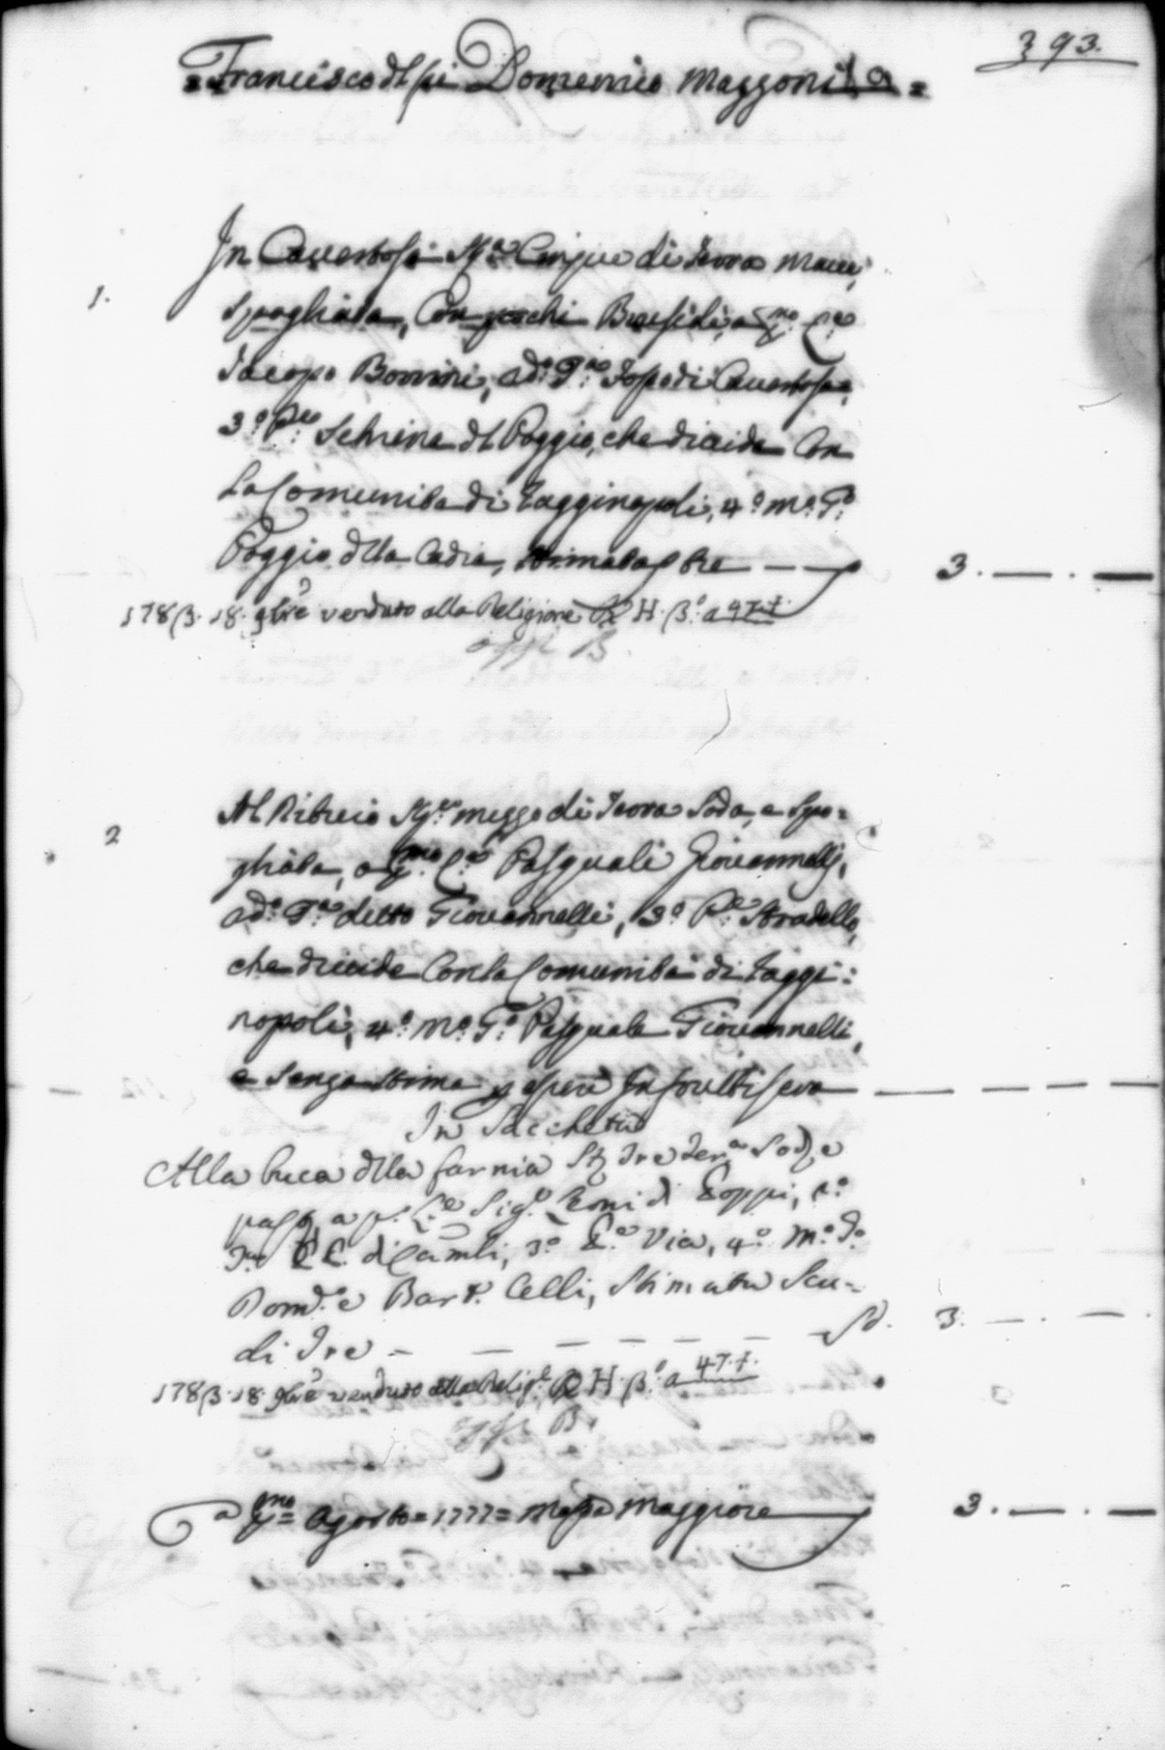 393.
= Francisco dl fù Domenico Mazzoni =
1. In Cavertosa St.a Cinque di terra Macc.
Spogliata, Con pochi a P.mo C.o
Jacopo Bonini, ad.o P.mo Fosso di Cavertosa,
3.o P.o Schiena dl Poggio, che divide Con
La Comunità di Fagginopoli, 4.o M.o G.o
Poggio dlla Cadia, Stimata S tre — — 3. — . —
178β. 18. 9bre venduto alla Religione H. β.o a 47.t.
B
2 Al Ritrcio St.o mezzo di terra Soda, e Spo=
gliata, a P.mo C.o Pasquali Giovannelli,
ad.o P.o detto Giovannelli, 3.o P.o Stradello,
che divide Con la Comunità di Faggi=
nopoli, 4.o M.o G.o Pasquale Giovannelli,
e Senza Stima p essere Infruttifera — — — —
In Sacchetta
Alla buca dlla farnia St. Tre Ter.a Sod., e
past., a p.o C.o Sig.r Leoni di Zoppi, 2.o
di Cambi, 3.o L.o Via, 4.o M.o G.o
Dom.o e Bart. Celli, Stimata Scu=
di Tre — — — — — Sd. 3. — . —
178β. 18. 9bre venduto alla Relig.e H. β.o a 47.t.
B.
a P.mo = Agosto = 1777 = Massa Maggiore — 3. — . —